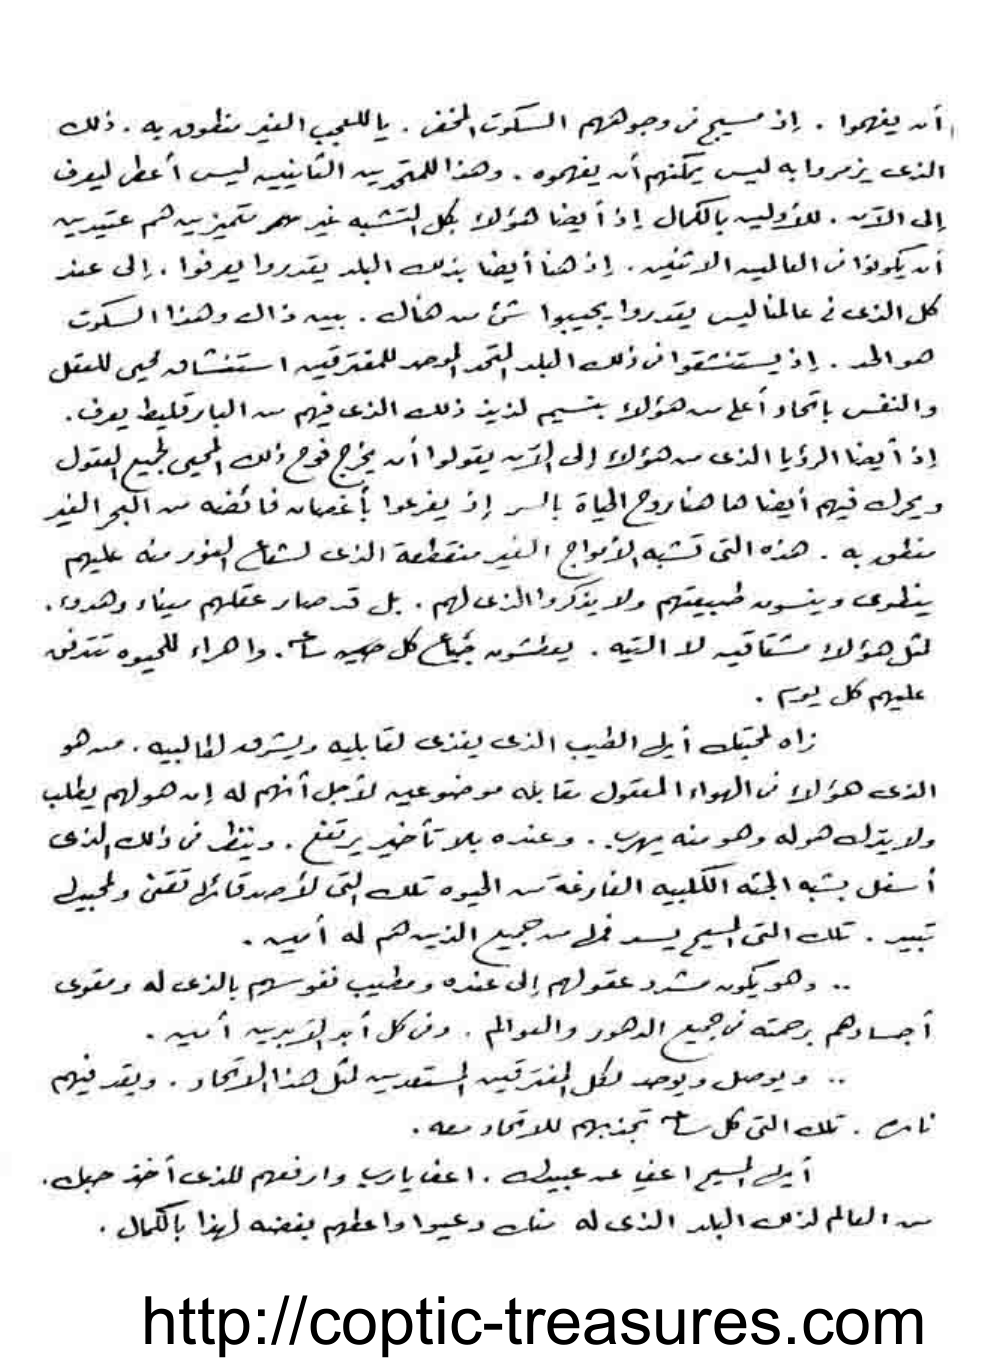 أن يفهموا . إذ مسيح في وجوههم السكوت المخفى . يا للعجب الغير منطوق به . ذلك
الذى يزمروا به ليس يمكنهم أن يفهموه . وهذا للمتحدين الثانيين ليس أعطى ليعرف
إلى الآن . للأولين بالكمال إذ أيضا هؤلاء بكل التشبه غير متميزين هم عتيدين
أن يكونوا في العالمين الاثنين . إذ هنا أيضا بذلك البلد يقدروا يعرفوا . إلى عند
كل الذى في عالمنا ليس يقدروا يجيبوا شئ من هناك . بين ذاك وهذا السكوت
هو الحد . إذ يستنشقوا في ذلك البلد المتحد الموحد للمفترقين استنشاق محيى للعقل
والنفس باتحاد أعلى من هؤلاء بنسيم لذيذ ذلك الذى فيهم من البارقليط يعرف .
إذ أيضا الرؤيا الذى من هؤلاء إلى الآن يقولوا أن يخرج فوح ذلك المحيى لجميع العقول
ويحرك فيهم أيضا ها هنا روح الحياة بالسر إذ يفرعوا بأغصان فائضه من البحر الغير
منطق به . هذه التى تشبه الأمواج الغير منقطعة الذى لشعاع النور منه عليهم
ينطوى وينسون طبيعتهم ولا يذكروا الذى لهم . بل قد صار عقلهم ميناء وهدوء .
لمثل هؤلاء مشتاقين لا التيه . يعطشون جياع كل ساعة . واهراء للحيوه تتدفق
عليهم كل يوم .
زاه لمحبتك أيها الطيب الذى يغذى لقابليه ويشرق لطالبيه . من هو
الذى هؤلاء في الهواء المعقول مقابله موضوعين لأجل أنهم له إن هو لهم يطلب
ولا يترك هو له وهو منه يهرب . وعنده بلا تأخير يرتفع . وينظر في ذلك الذى
أسفل بشبه الجثه الكلبيه الفارغة من الحيوه تلك التى لأصدقائها تقنى ولمحبيها
تبيد . تلك التى المسيح يسد فمها من جميع الذين هم له أمين .
.. وهو يكون مشدد عقولهم إلى عنده ومطيب نفوسهم بالذى له ومقوى
أجسادهم برحمته في جميع الدهور والعوالم . وفي كل أبد الآبدين أمين .
.. ويوصل ويوحد لكل المفترقين المستعدين لمثل هذا الاتحاد . ويقد فيهم
ناره . تلك التى كل ساعة تجذبهم للاتحاد معه .
أيها المسيح اعفى عن عبيدك . اعف يارب وارفعهم للذى أخذ حبك .
من العالم لذلك البلد الذى له منك دعيوا واعطهم بغضه لهذا بالكمال .
http://coptic-treasures.com